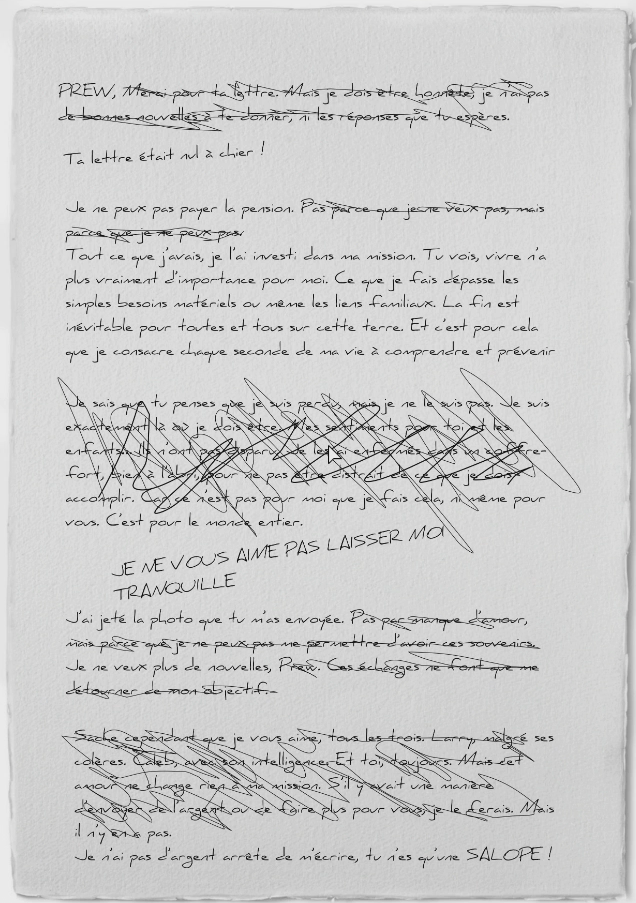 PREW, Merci pour ta lettre. Mais je dois être honnête, je n'ai pas
de bonnes nouvelles à te donner, ni les réponses que tu espères.
Ta lettre était nul à chier !
Je ne peux pas payer la pension. Pas parce que je ne veux pas, mais
parce que je ne peux pas.
Tout ce que j'avais, je l'ai investi dans ma mission. Tu vois, vivre n'a
plus vraiment d'importance pour moi. Ce que je fais dépasse les
simples besoins matériels ou même les liens familiaux. La fin est
inévitable pour toutes et tous sur cette terre. Et c'est pour cela
que je consacre chaque seconde de ma vie à comprendre et prévenir
Je sais que tu penses que je suis perdu, mais je ne le suis pas. Je suis
exactement là où je dois être. Mes sentiments pour toi et les
enfants. Ils n'ont pas disparu. Je les ai enfermés dans un coffre-
fort, bien à l'abri, pour ne pas être distrait de ce que je dois
accomplir. Car ce n'est pas pour moi que je fais cela, ni même pour
vous. C'est pour le monde entier.
JE NE VOUS AIME PAS LAISSER MOI
TRANQUILLE
J'ai jeté la photo que tu m'as envoyée. Pas par manque d'amour,
mais parce que je ne peux pas me permettre d'avoir ces souvenirs.
Je ne veux plus de nouvelles, Prew. Ces échanges ne font que me
détourner de mon objectif.
Sache cependant que je vous aime, tous les trois. Larry, malgré ses
colères. Caleb, avec son intelligence. Et toi, toujours. Mais cet
amour ne change rien à ma mission. S'il y avait une manière
d'envoyer de l'argent ou de faire plus pour vous, je le ferais. Mais
il n'y en a pas.
Je n'ai pas d'argent arrête de m'écrire, tu n'es qu'une SALOPE !